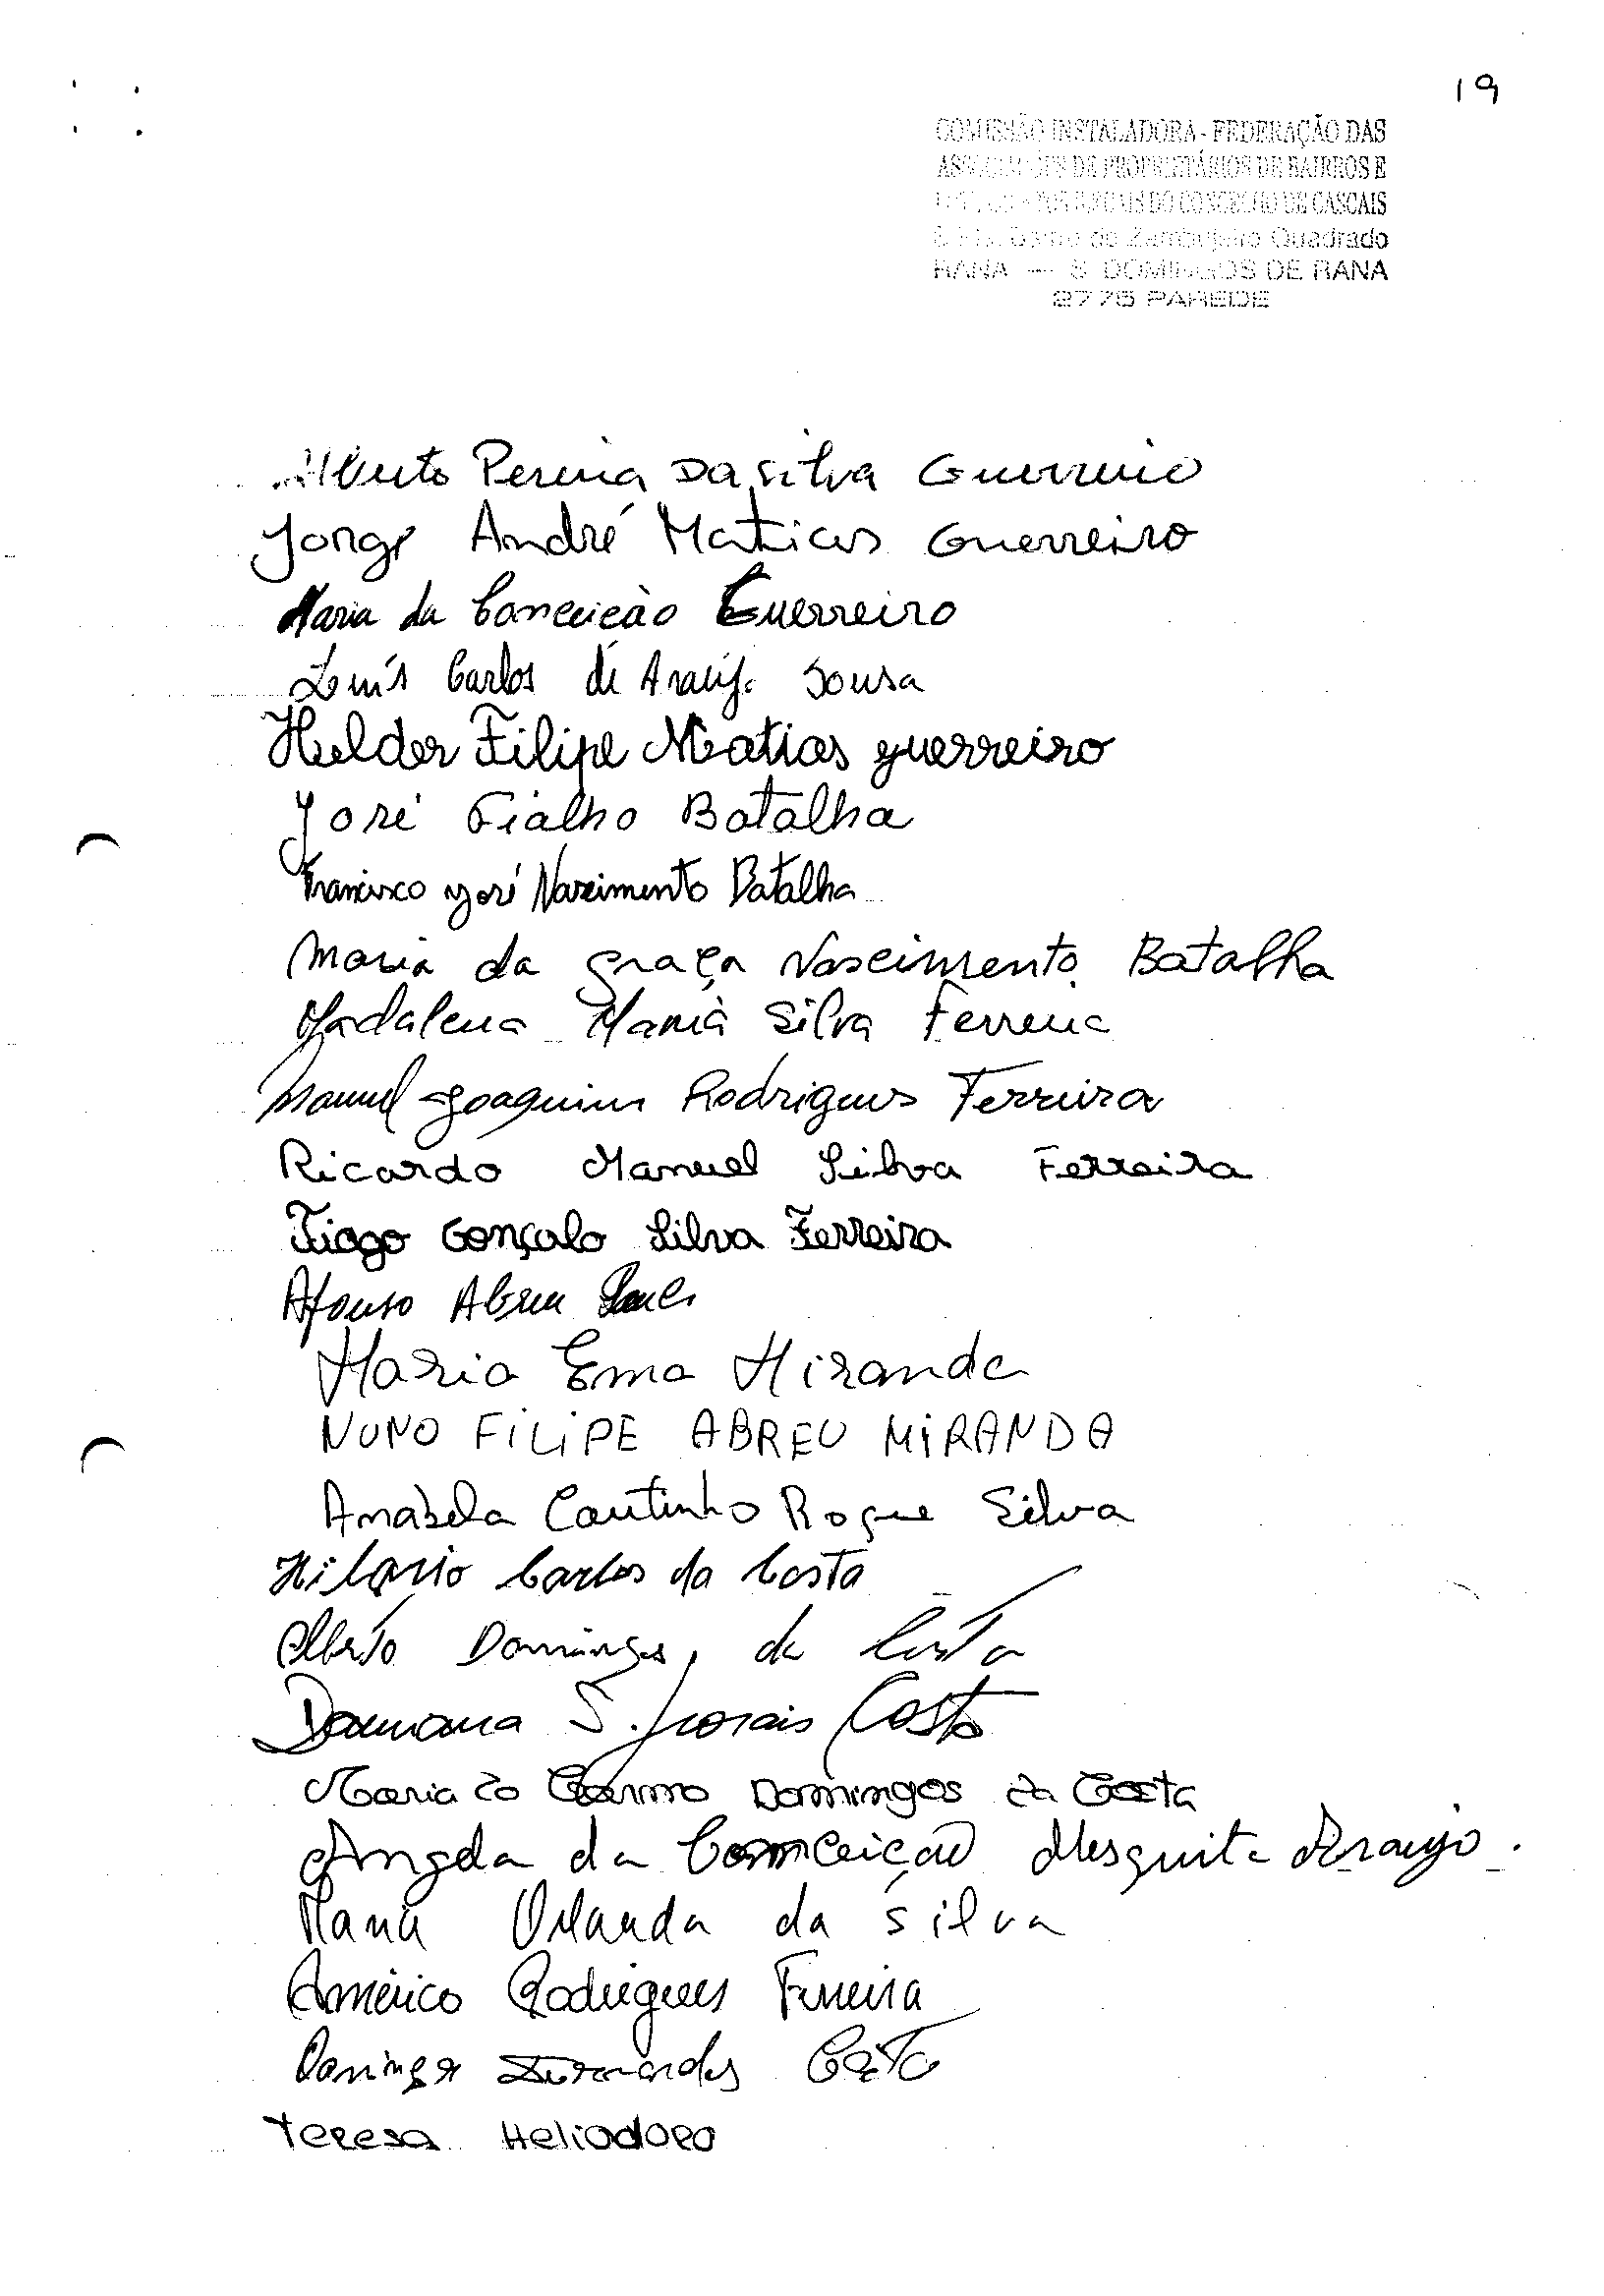 19
COMISSÃO INSTALADORA - FEDERAÇÃO DAS
ASSOCIAÇÕES DE PROPRIETÁRIOS DE BAIRROS E
DO CONCELHO DE CASCAIS
Bairro do Zambujeiro Quadrado
RANA — S. DOMINGOS DE RANA
2775 PAREDE
Alberto Pereira Da Silva Guerreiro
Jorge André Matias Guerreiro
Maria da Conceição Guerreiro
Luís Carlos de Araújo Sousa
Helder Filipe Matias guerreiro
José Fialho Batalha
Francisco José Nascimento Batalha
Maria da graça Nascimento Batalha
Madalena Maria Silva Ferreira
Manuel Joaquim Rodrigues Ferreira
Ricardo Manuel Silva Ferreira
Tiago Gonçalo Silva Ferreira
Afonso Abreu
Maria Ema Miranda
NUNO FILIPE ABREU MIRANDA
Anabela Coutinho Roque Silva
Hilario Carlos da Costa
Alberto Domingos da Costa
Damiana S. Morais Costa
Maria do Carmo Domingos da Costa
Angela da Conceição Mesquita Araujo.
Maria Orlanda da Silva
Américo Rodrigues Ferreira
Domingos Fernandes
Teresa Heliodoro